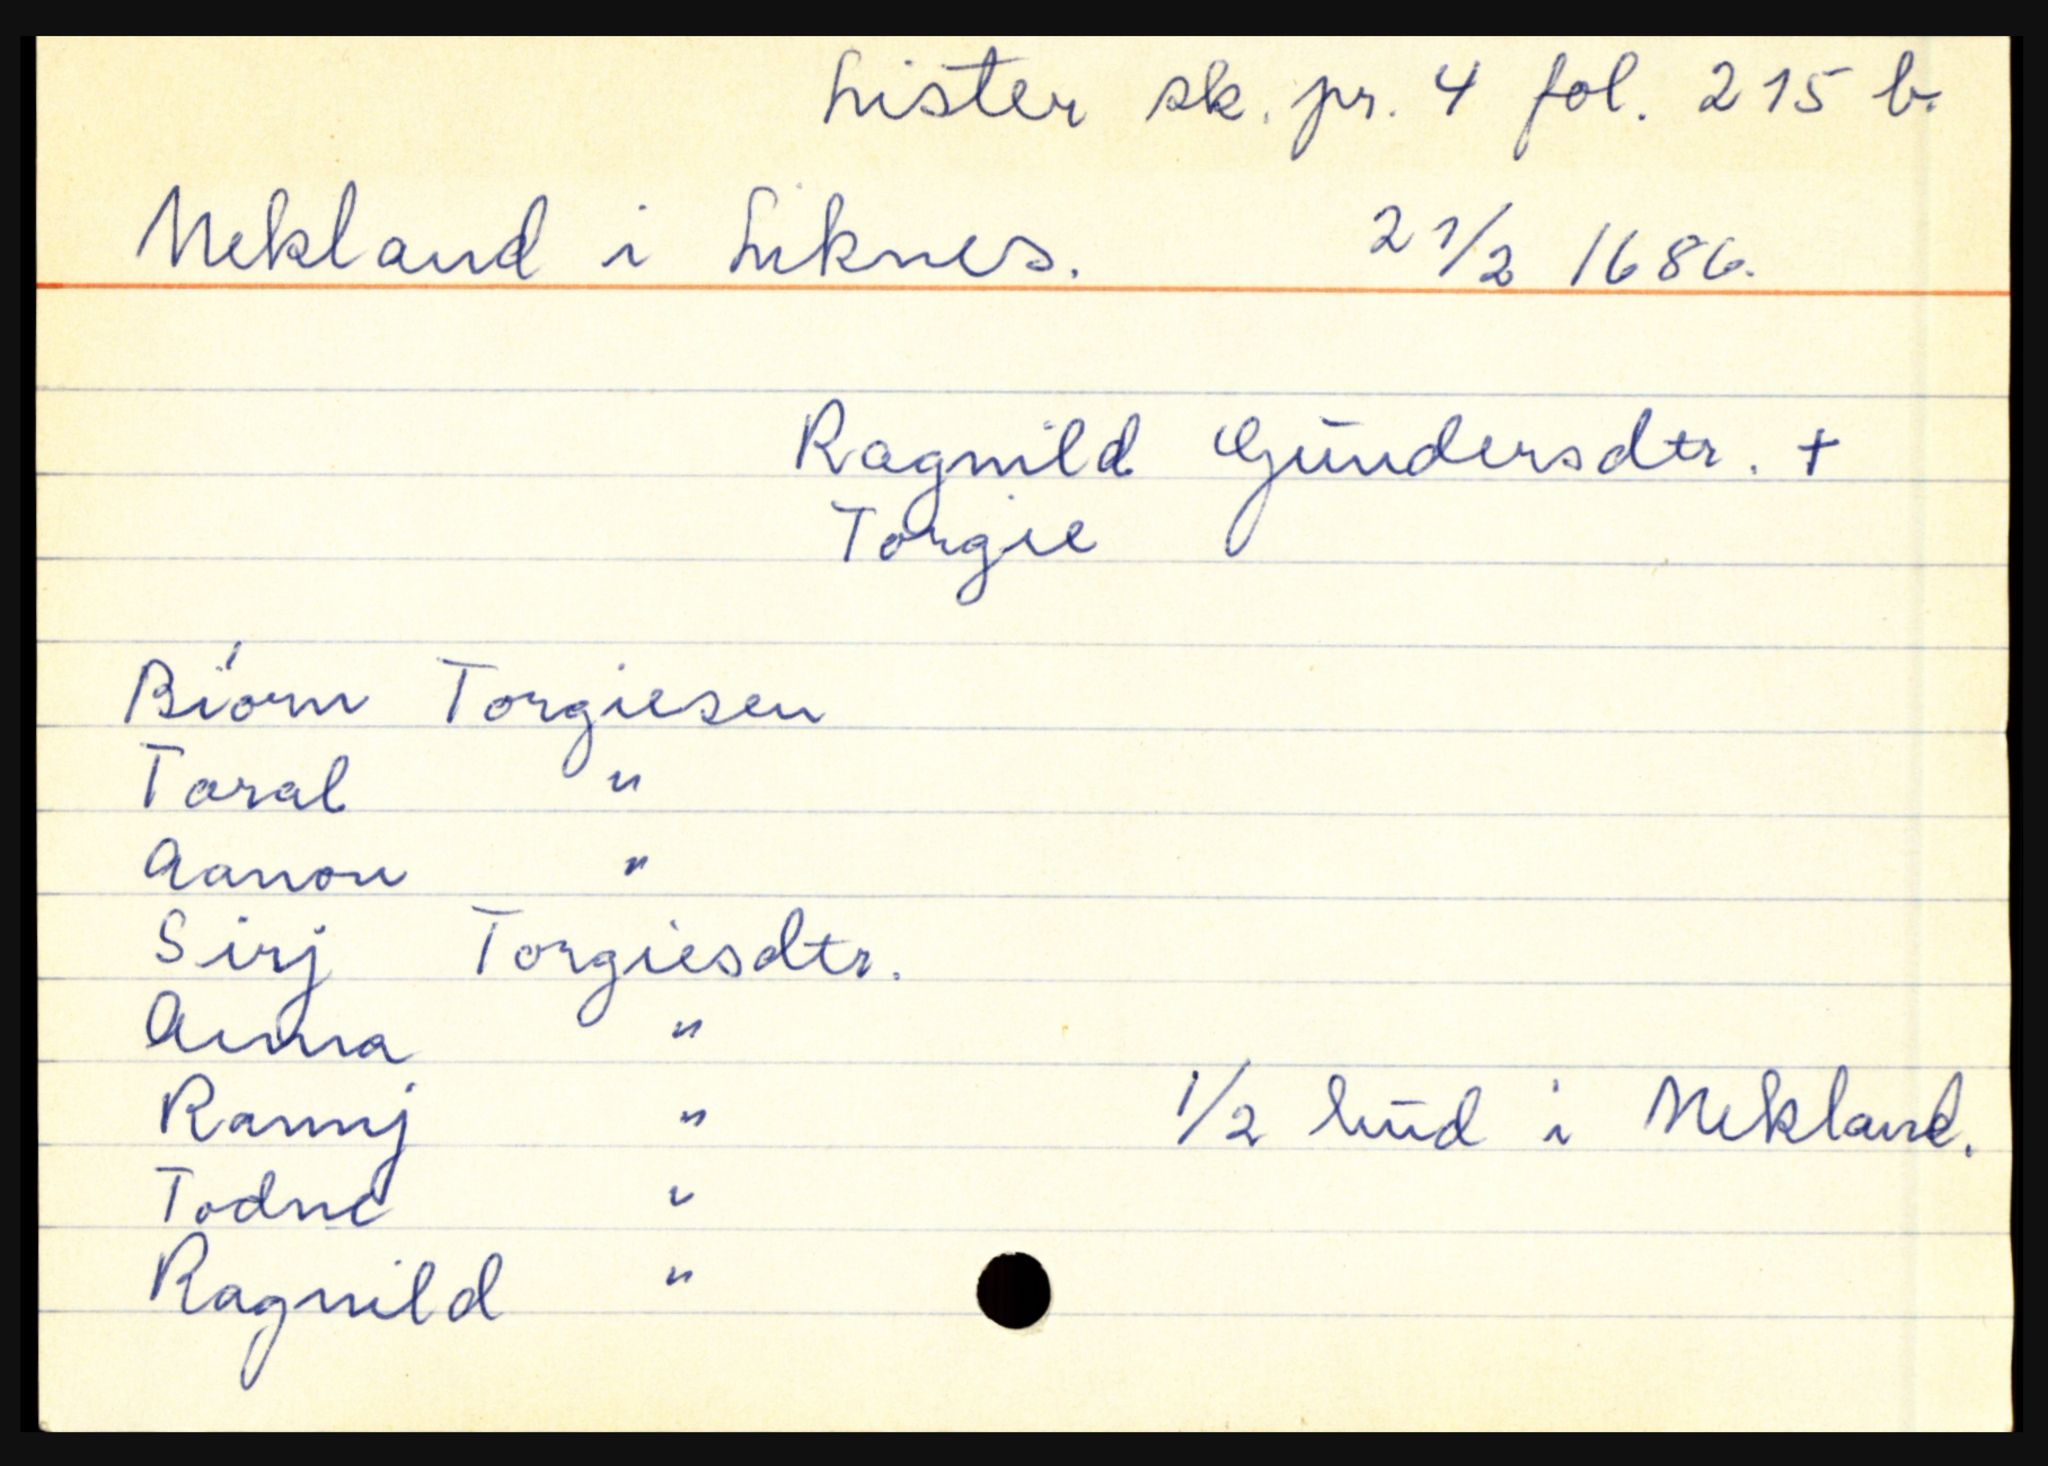 Lister sk. pr. 4 fol. 215 b.
Nekland i Liknes. 21/2 1686.
Ragnild Gundersdtr. +
Torgie
Biørn Torgiesen
Taral "
Aanon "
Sirj Torgiesdtr.
Anna "
Rannj " 1/2 hud i Nekland.
Todne "
Ragnild "